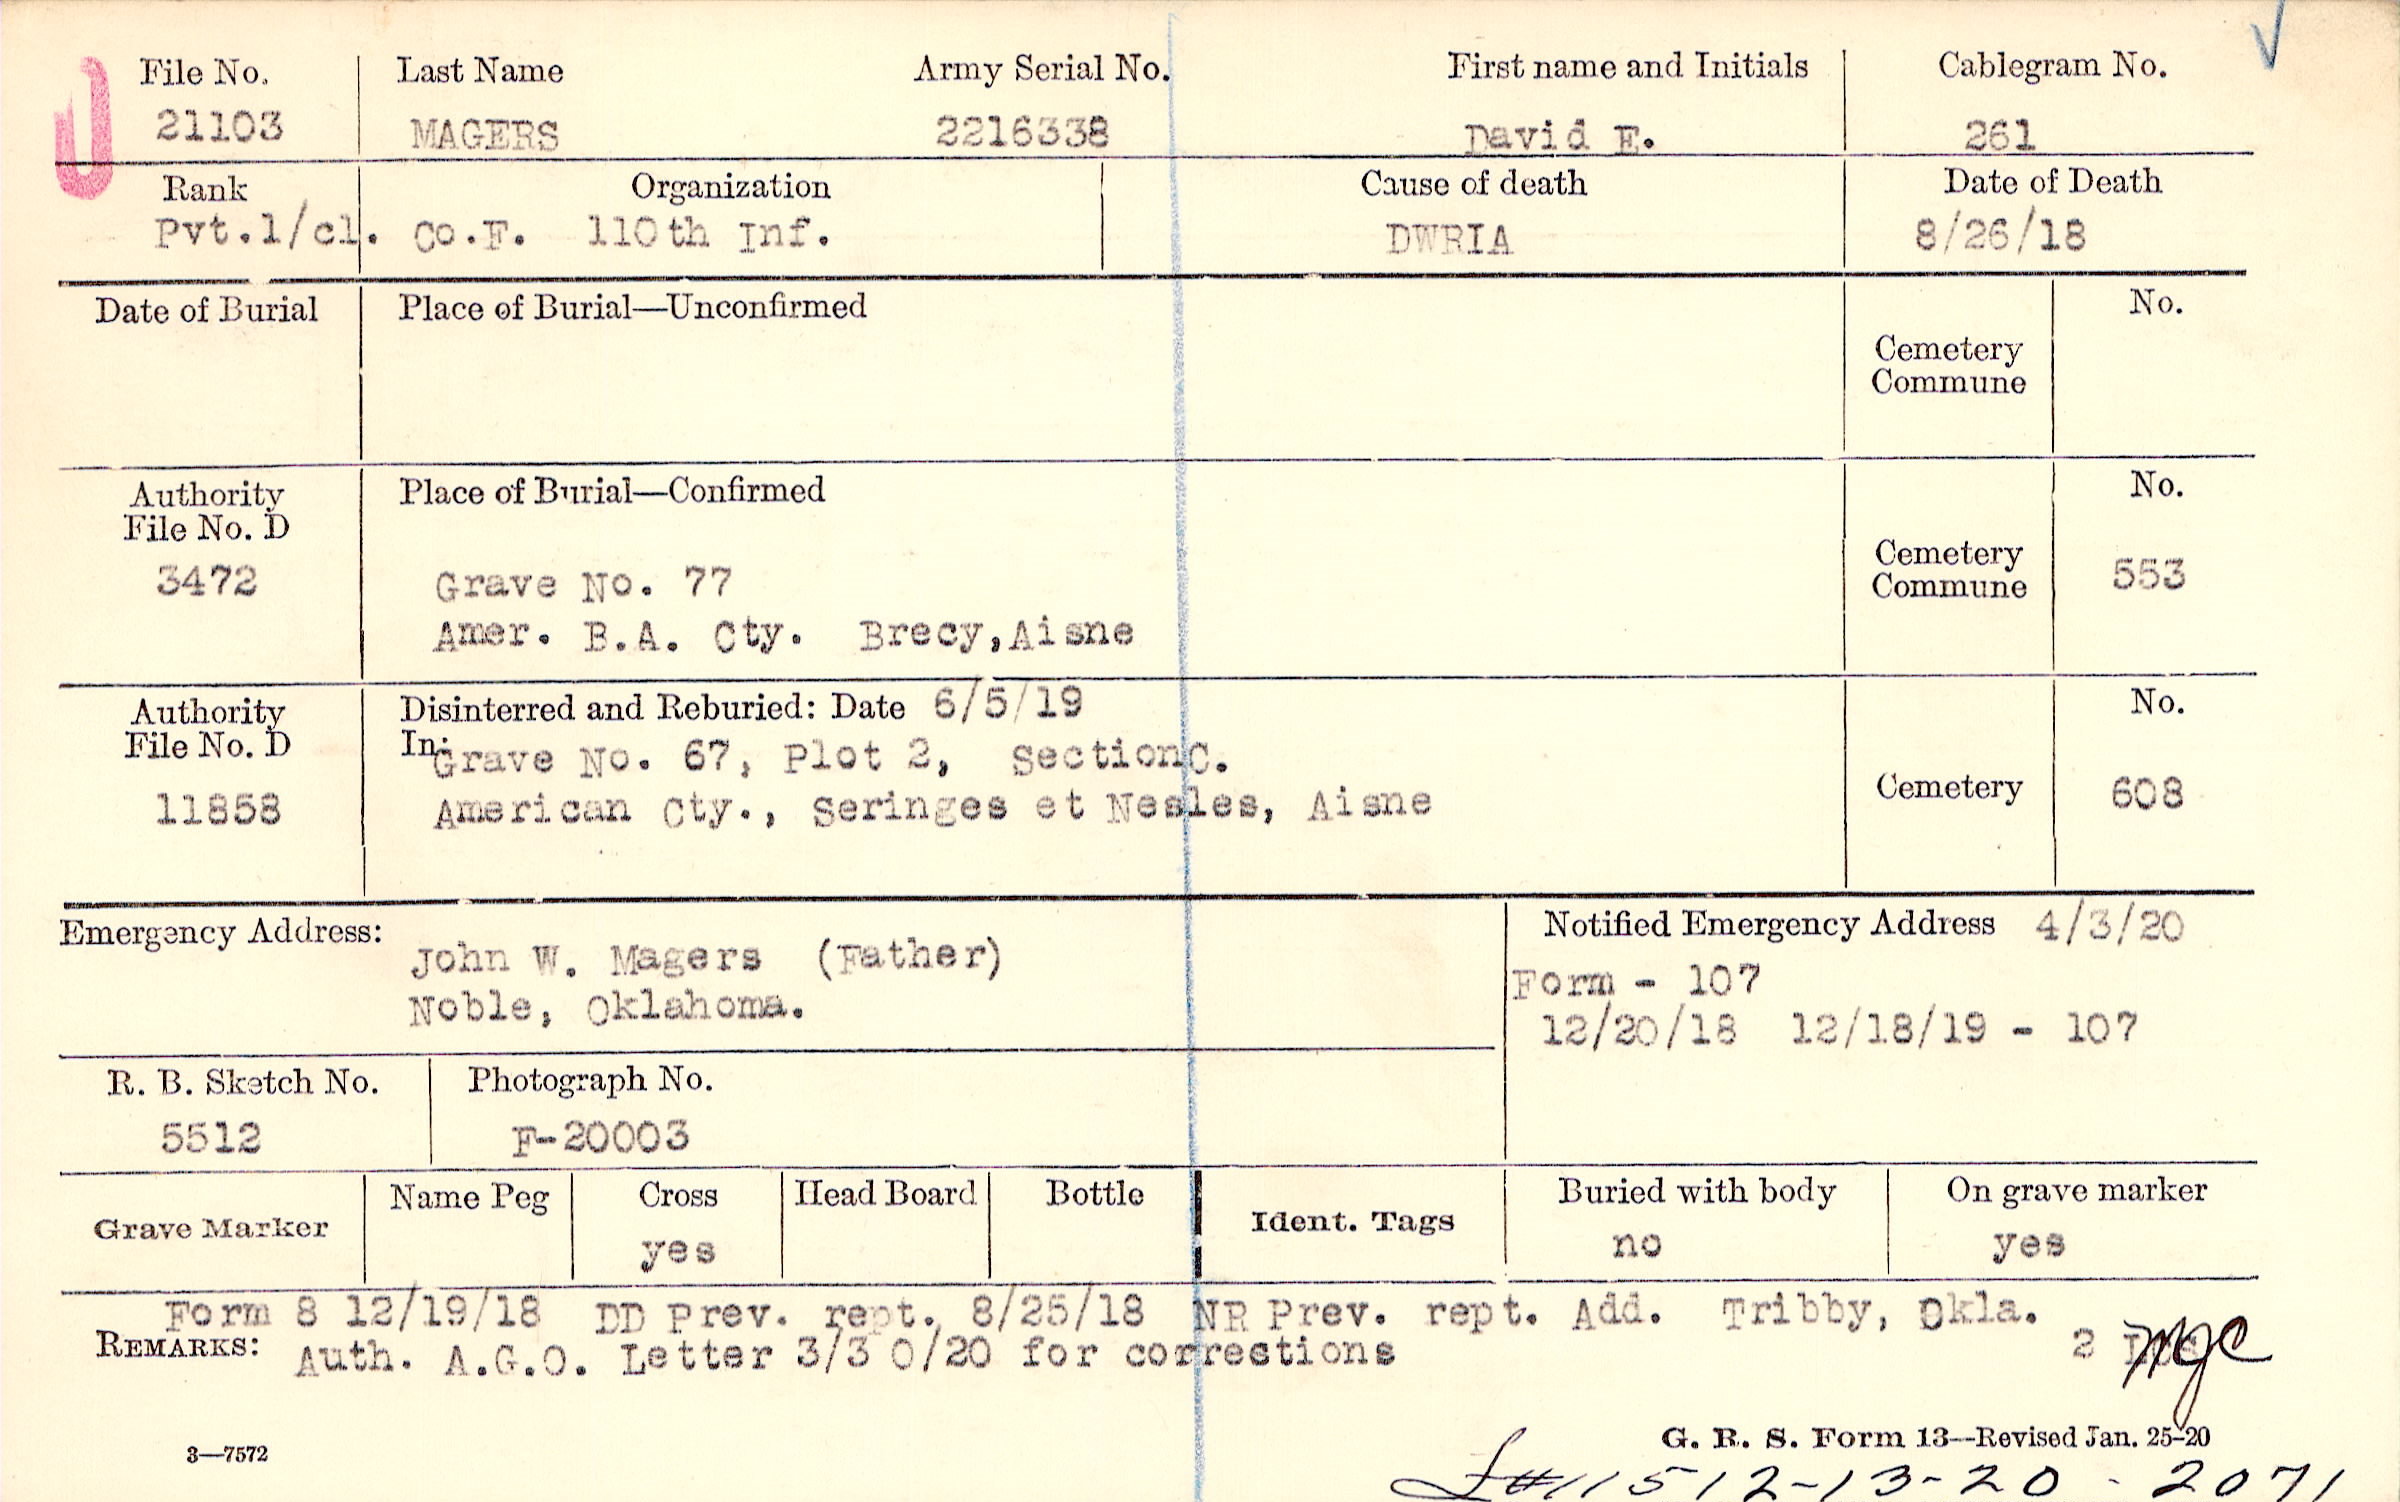 File No. Last Name Army Serial No. First name and Initials Cablegram No.
21103 MAGERS 2216338 David E. 261
Rank Organization Cause of death Date of Death
Pvt.1/cl. Co.F. 110th Inf. DWRIA 8/26/18
Date of Burial Place of Burial—Unconfirmed No.
Cemetery
Commune
Authority Place of Burial—Confirmed No.
File No. D
3472 Grave No. 77 Cemetery Commune 553
Amer. B.A. Cty. Brecy,Aisne
Authority Disinterred and Reburied: Date 6/5/19 No.
File No. D In: Grave No. 67, Plot 2, SectionC.
11858 American Cty., Seringes et Nesles, Aisne Cemetery 608
Emergency Address: Notified Emergency Address 4/3/20
John W. Magers (Father) Form - 107
Noble, Oklahoma. 12/20/18 12/18/19 - 107
R. B. Sketch No. Photograph No.
5512 F-20003
Grave Marker Name Peg Cross Head Board Bottle Ident. Tags Buried with body On grave marker
yes no yes
Form 8 12/19/18 DD Prev. rept. 8/25/18 NR Prev. rept. Add. Tribby, Okla.
REMARKS: Auth. A.G.O. Letter 3/3 0/20 for corrections 2
3—7572 G. R. S. Form 13—Revised Jan. 25-20
11512-13-20-2071